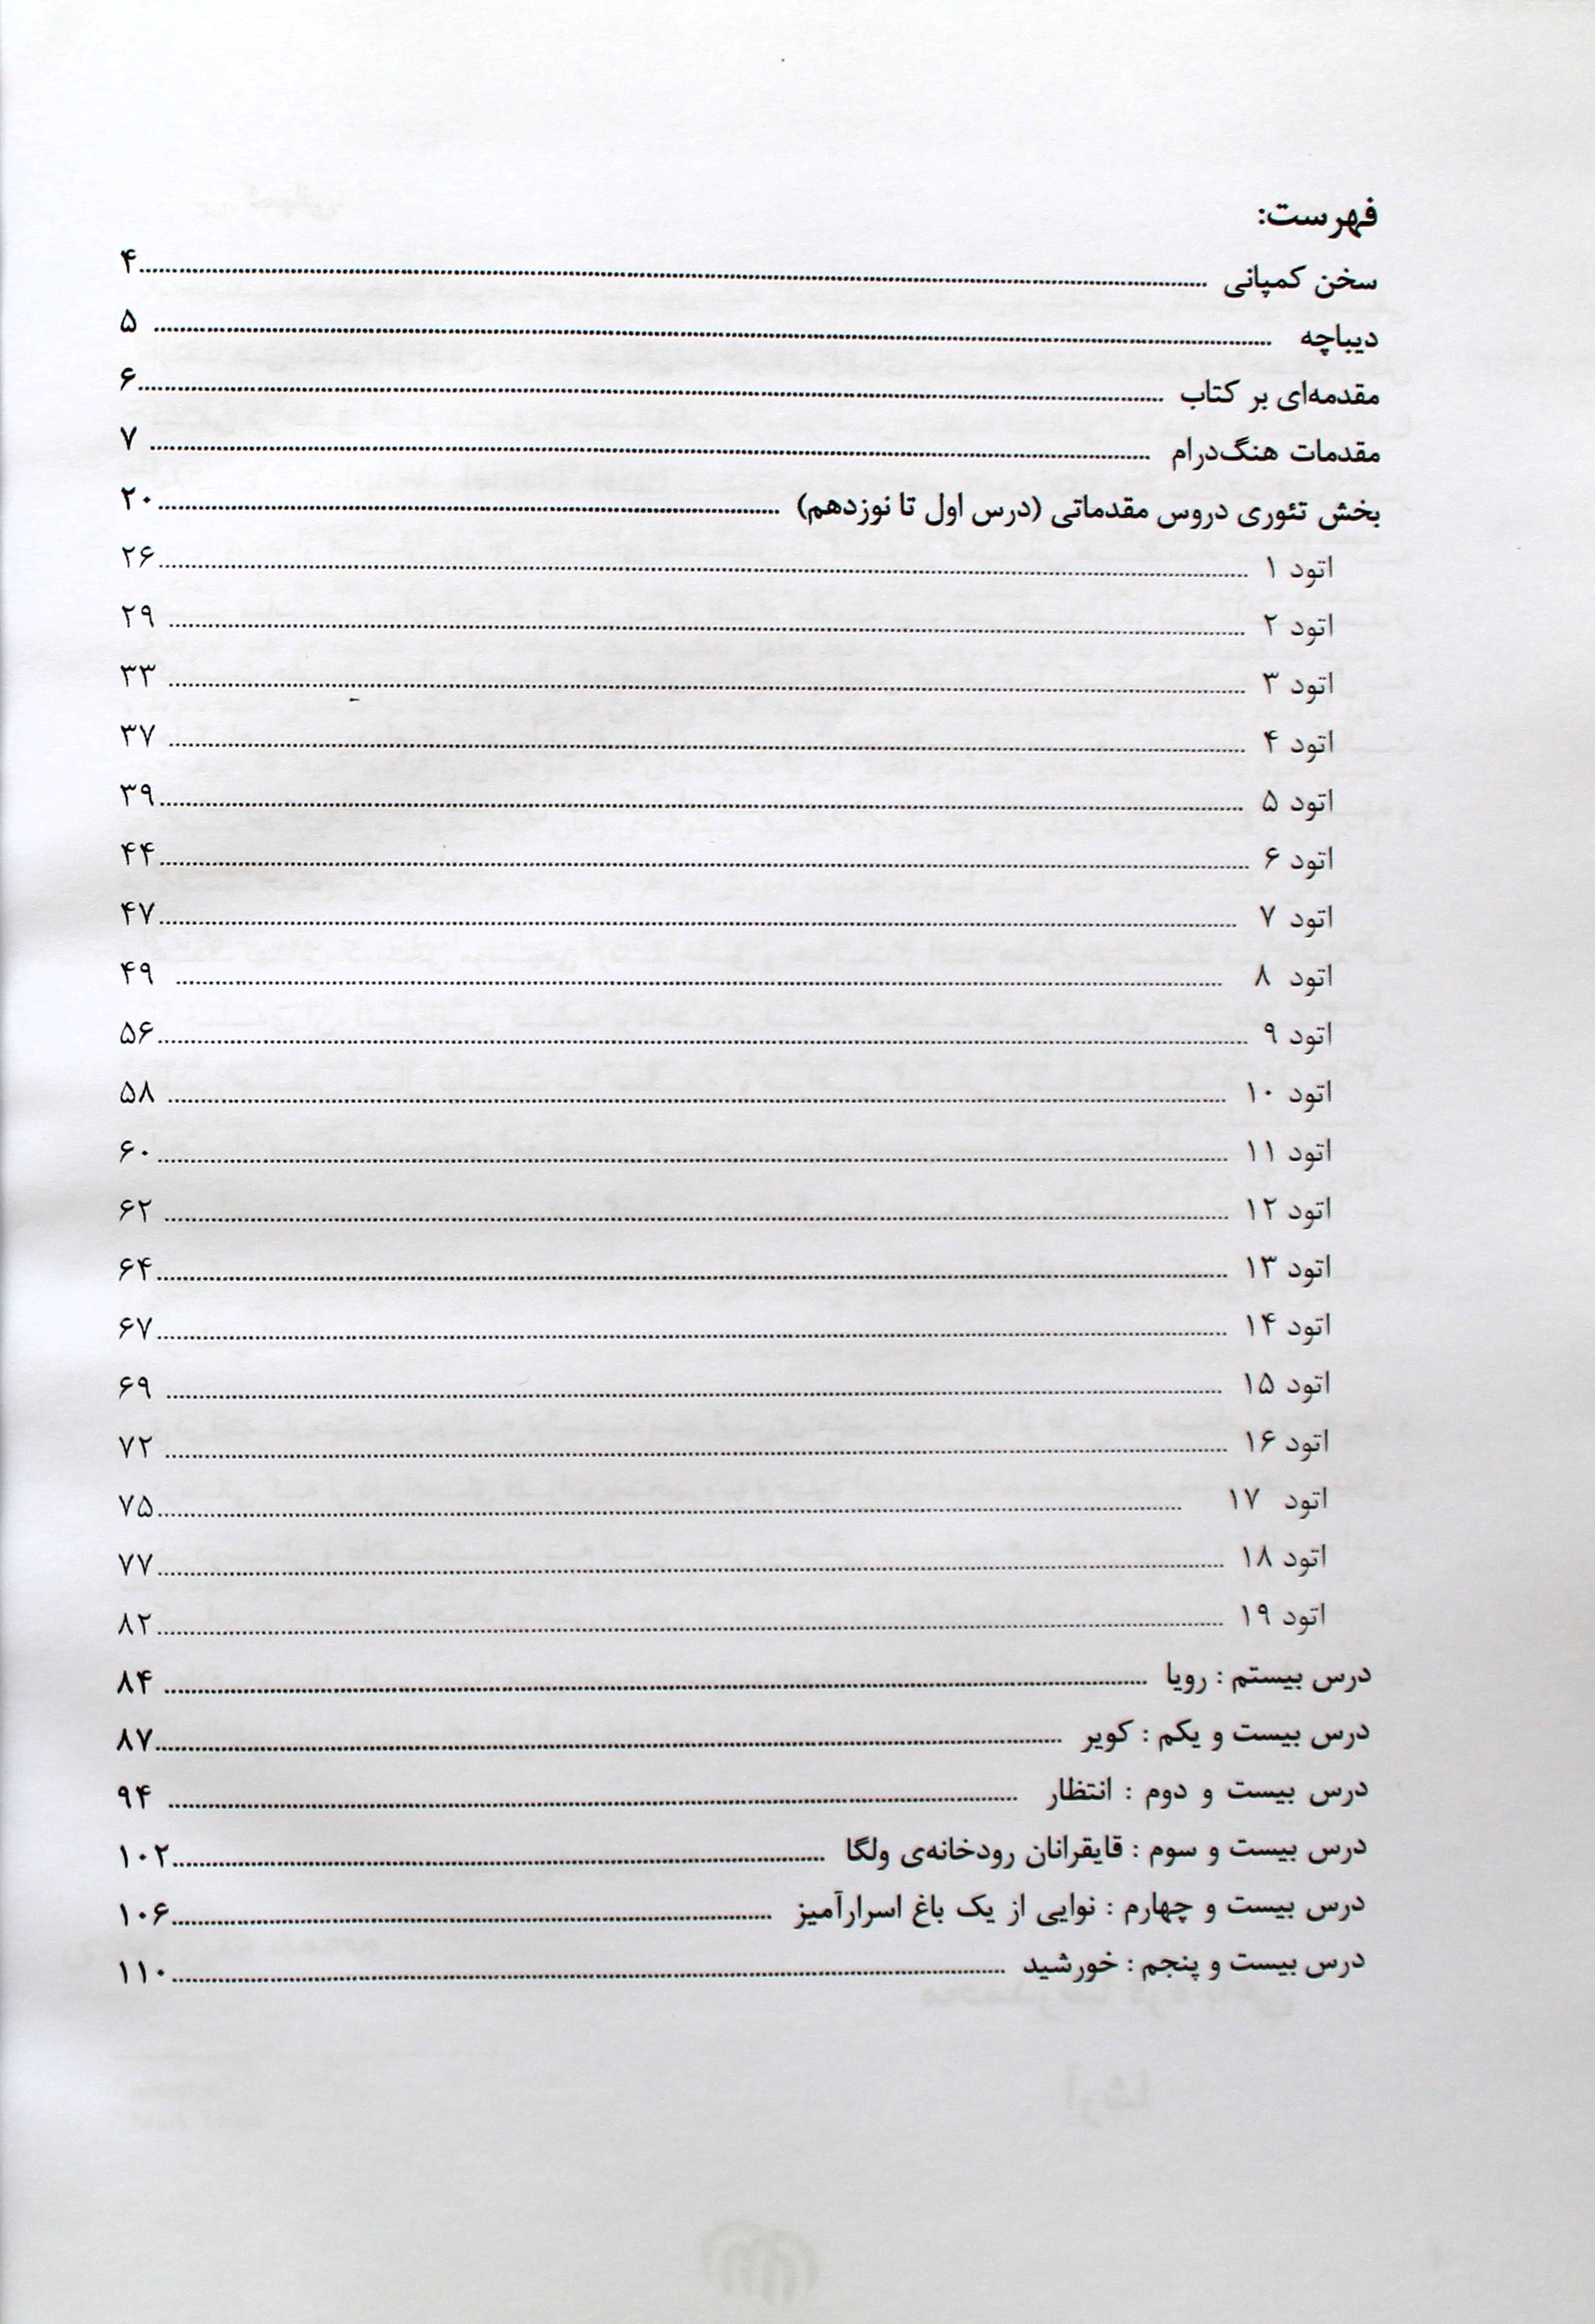 فهرست:
سخن کمپانی ........ ۴
دیباچه ........ ۵
مقدمه‌ای بر کتاب ........ ۶
مقدمات هنگ‌درام ........ ۷
بخش تئوری دروس مقدماتی (درس اول تا نوزدهم) ........ ۲۰
اتود ۱ ........ ۲۶
اتود ۲ ........ ۲۹
اتود ۳ ........ ۳۳
اتود ۴ ........ ۳۷
اتود ۵ ........ ۳۹
اتود ۶ ........ ۴۴
اتود ۷ ........ ۴۷
اتود ۸ ........ ۴۹
اتود ۹ ........ ۵۶
اتود ۱۰ ........ ۵۸
اتود ۱۱ ........ ۶۰
اتود ۱۲ ........ ۶۲
اتود ۱۳ ........ ۶۴
اتود ۱۴ ........ ۶۷
اتود ۱۵ ........ ۶۹
اتود ۱۶ ........ ۷۲
اتود ۱۷ ........ ۷۵
اتود ۱۸ ........ ۷۷
اتود ۱۹ ........ ۸۲
درس بیستم : رویا ........ ۸۴
درس بیست و یکم : کویر ........ ۸۷
درس بیست و دوم : انتظار ........ ۹۴
درس بیست و سوم : قایقرانان رودخانه‌ی ولگا ........ ۱۰۲
درس بیست و چهارم : نوایی از یک باغ اسرارآمیز ........ ۱۰۶
درس بیست و پنجم : خورشید ........ ۱۱۰